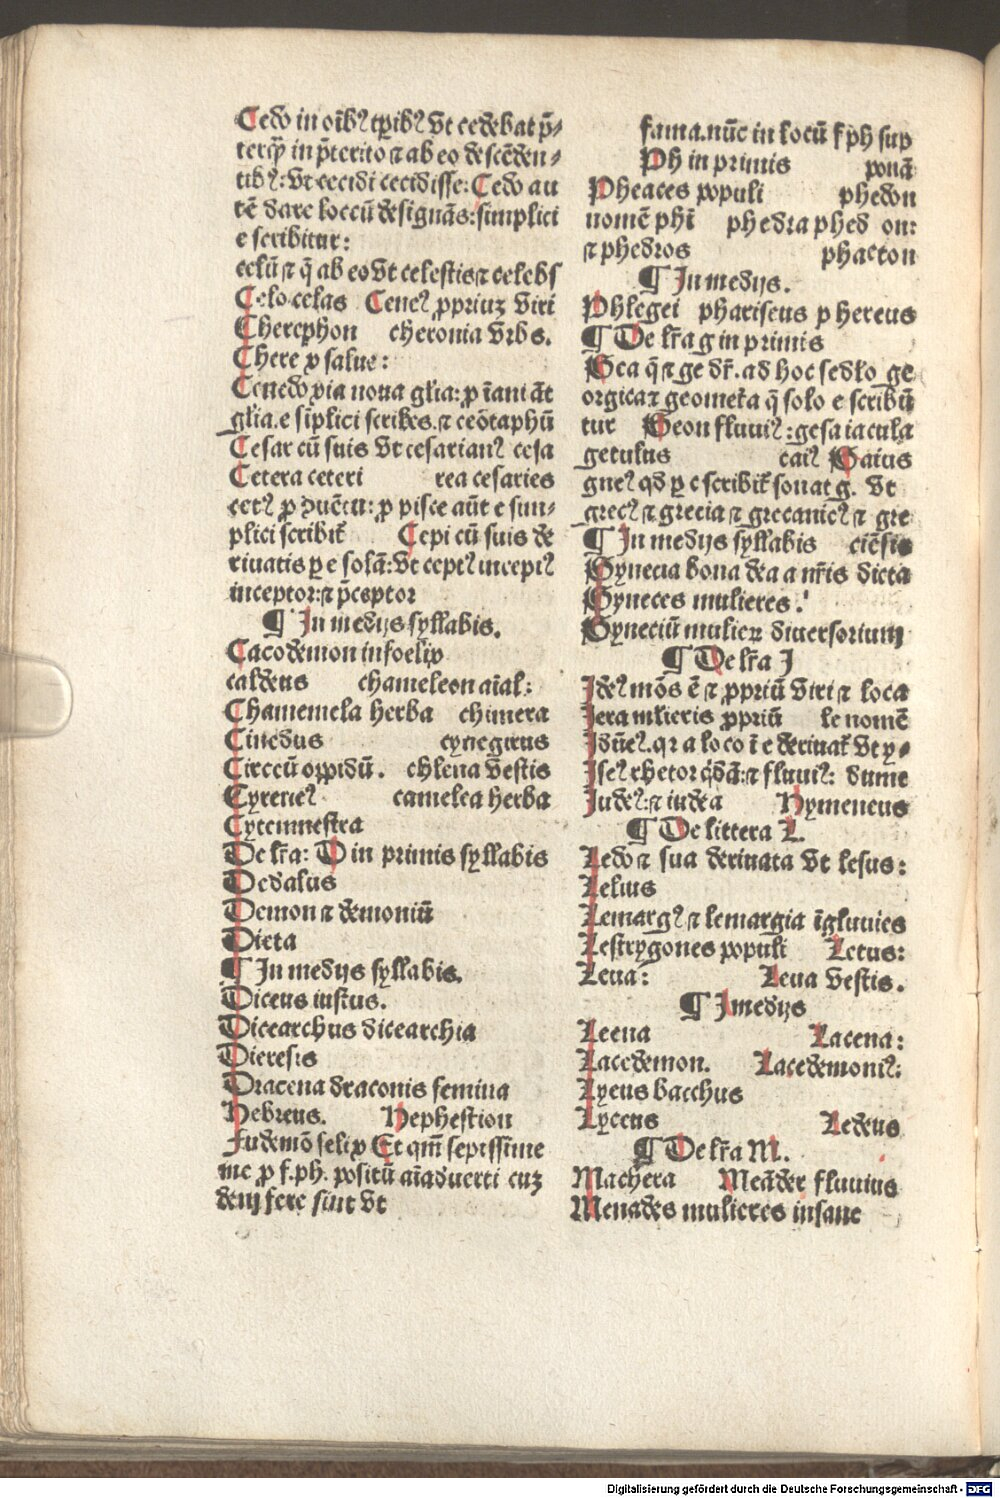 Cedo in oīb⁹ tꝑib⁹ vt cedebat p̄-
terꝙ̄ in p̄terito ⁊ ab eo descēden-
tib⁹: vt cecidi cecidisse: Cedo au
tē dare loccū designās: simplici
e scribitur:
celū ⁊ q̄ ab eo vt celestis ⁊ celebs
Celo celas Cene⁹ ꝓpriuꝫ viri
Cherephon cheronia vrbs.
Chere ꝓ salue:
Cenedoxia noua glia: ꝓ īani āt
glia. e sīplici scribes. ⁊ ceōtaphū
Cesar cū suis vt cesarian⁹ cesa
Cetera ceteri rea cesaries
cet⁹ ꝓ ꝯuētu: ꝓ pisce aūt e sim-
plici scribit̄ Cepi cū suis de
riuatis ꝑ e solā: vt cept⁹ incepi⁹
inceptor: ⁊ p̄ceptor
¶ In medijs syllabis.
Cacodemon infoelix
caldeus chameleon aīal:
Chamemela herba chimera
Cinedus cynegirus
Circeū oppidū. chlena vestis
Cyrene⁹ camelea herba
Cytemnestra
De lr̄a: D in primis syllabis
Dedalus
Demon ⁊ demoniū
Dieta
¶ In medijs syllabis.
Diceus iustus.
Dicearchus dicearchia
Dieresis
Dracena draconis femina
Hebreus. Hephestion
Fudemō felix Et qm̄ sepissime
me ꝓ f. ph. positū aīaduerti cuꝫ
dem fere sint vt
fama. nūc in locū f ph sup
Ph in primis ponā
Pheaces populi phedon
nomē phī phedra phed on:
⁊ phedros phaeton
¶ In medijs.
Phlegei phariseus phereus
¶ De lr̄a g in primis
Gea q̄ ⁊ ge dr̄. ad hoc sedlo ge
orgica ⁊ geometra q̄ solo e scribū
tur Geon fluui⁹: gesa iacula
getulus cai⁹ Gaius
gne⁹ qd ꝑ c scribit̄ sonat g. vt
grec⁹ ⁊ grecia ⁊ grecanic⁹ ⁊ gre
¶ In medijs syllabis ciēsis
Gynecia bona dea a nr̄is dicta
Gyneces mulieres.
Gyneciū mulieꝝ diuersorium
¶ De lr̄a I
Ide⁹ mōs ē ⁊ ꝓpriū viri ⁊ loca
Iera mlieris ꝓpriū le nomē
Idūe⁹. qr a loco ī e deriuat̄ vt y-
Ise⁹ rhetor q̇dā: ⁊ fluui⁹: dume
Iude⁹: ⁊ iudea Hymeneus
¶ De littera L.
Ledo ⁊ sua deriuata vt lesus:
Lelius
Lemarg⁹ ⁊ lemargia īgluuies
Lestrygones populi Letus:
Leua: Lena vestis.
¶ I medijs
Leena Lacena:
Lacedemon. Lacedemoni⁹:
Lyeus bacchus
Lyceus Ledeus
¶ De lr̄a M.
Machera Meāder fluuius
Menades mulieres insane
Digitalisierung gefördert durch die Deutsche Forschungsgemeinschaft - DFG